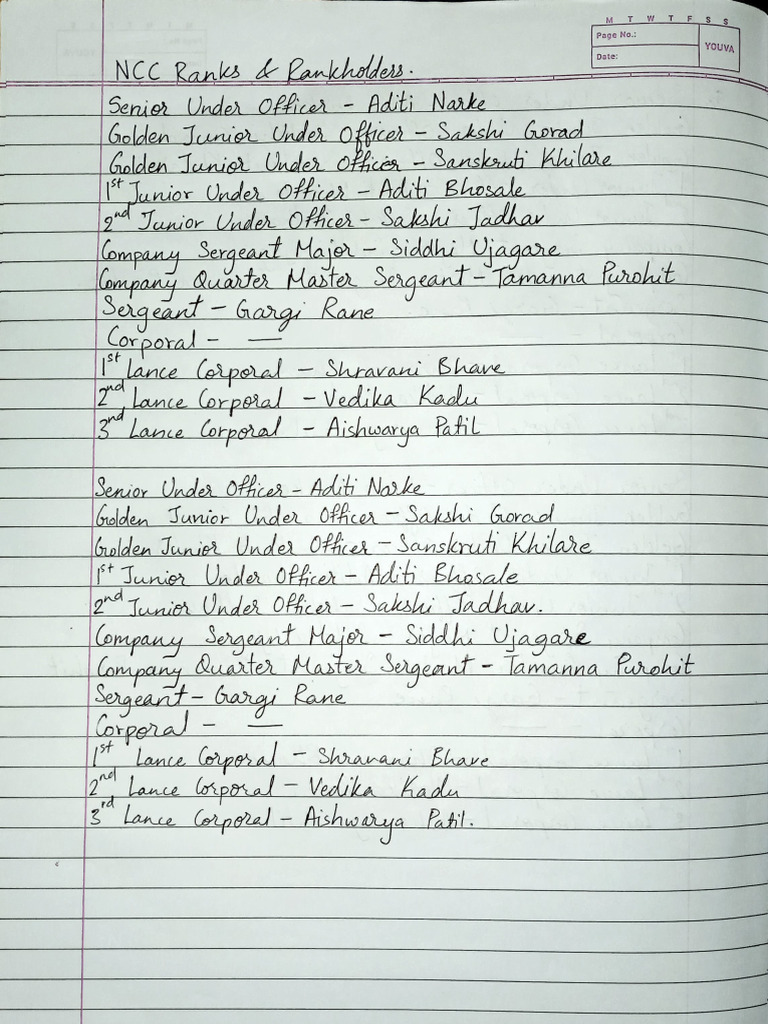 M T W T F S S
Page No.:
Date:
YOUVA
NCC Ranks & Rankholders.
Senior Under Officer - Aditi Narke
Golden Junior Under Officer - Sakshi Gorad
Golden Junior Under Officer - Sanskruti Khilare
1st Junior Under Officer - Aditi Bhosale
2nd Junior Under Officer - Sakshi Jadhav
Company Sergeant Major - Siddhi Ujagare
Company Quarter Master Sergeant - Tamanna Purohit
Sergeant - Gargi Rane
Corporal - —
1st Lance Corporal - Shravani Bhave
2nd Lance Corporal - Vedika Kadu
3nd Lance Corporal - Aishwarya Patil
Senior Under Officer - Aditi Narke
Golden Junior Under Officer - Sakshi Gorad
Golden Junior Under Officer - Sanskruti Khilare
1st Junior Under Officer - Aditi Bhosale
2nd Junior Under Officer - Sakshi Jadhav.
Company Sergeant Major - Siddhi Ujagare
Company Quarter Master Sergeant - Tamanna Purohit
Sergeant - Gargi Rane
Corporal - —
1st Lance Corporal - Shravani Bhave
2nd Lance Corporal - Vedika Kadu
3rd Lance Corporal - Aishwarya Patil.